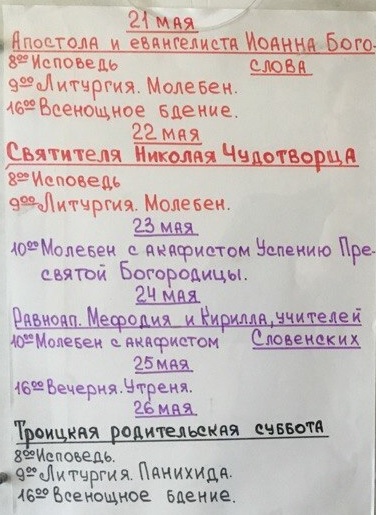 21 мая
Апостола и евангелиста Иоанна Бого-
слова
8⁰⁰ Исповедь
9⁰⁰ Литургия. Молебен.
16⁰⁰ Всенощное бдение.
22 мая
Святителя Николая Чудотворца
8⁰⁰ Исповедь
9⁰⁰ Литургия. Молебен.
23 мая
10⁰⁰ Молебен с акафистом Успению Пре-
святой Богородицы.
24 мая
Равноап. Мефодия и Кирилла, учителей
Словенских
10⁰⁰ Молебен с акафистом
25 мая
16⁰⁰ Вечерня. Утреня.
26 мая
Троицкая родительская суббота
8⁰⁰ Исповедь.
9⁰⁰ Литургия. Панихида.
16⁰⁰ Всенощное бдение.